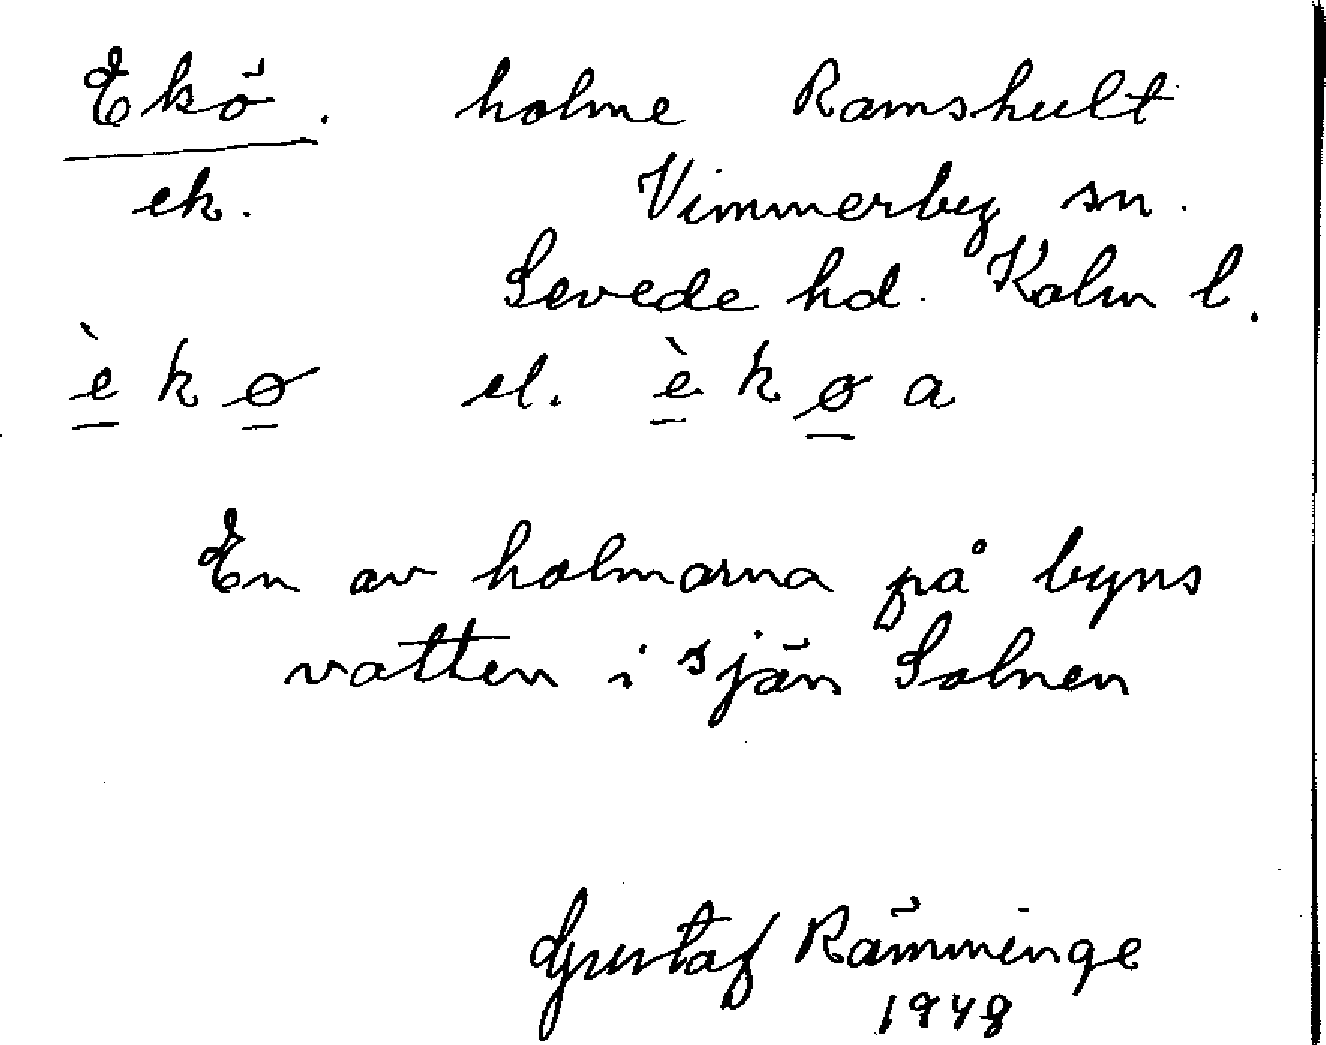 Ekö. holme Ramshult
ek. Vimmerby sn.
Sevede hd. Kalm l.
è k ø el. è k ø a
En av holmarna på byns
vatten i sjön Solnen
Gustaf Rämminge
1948